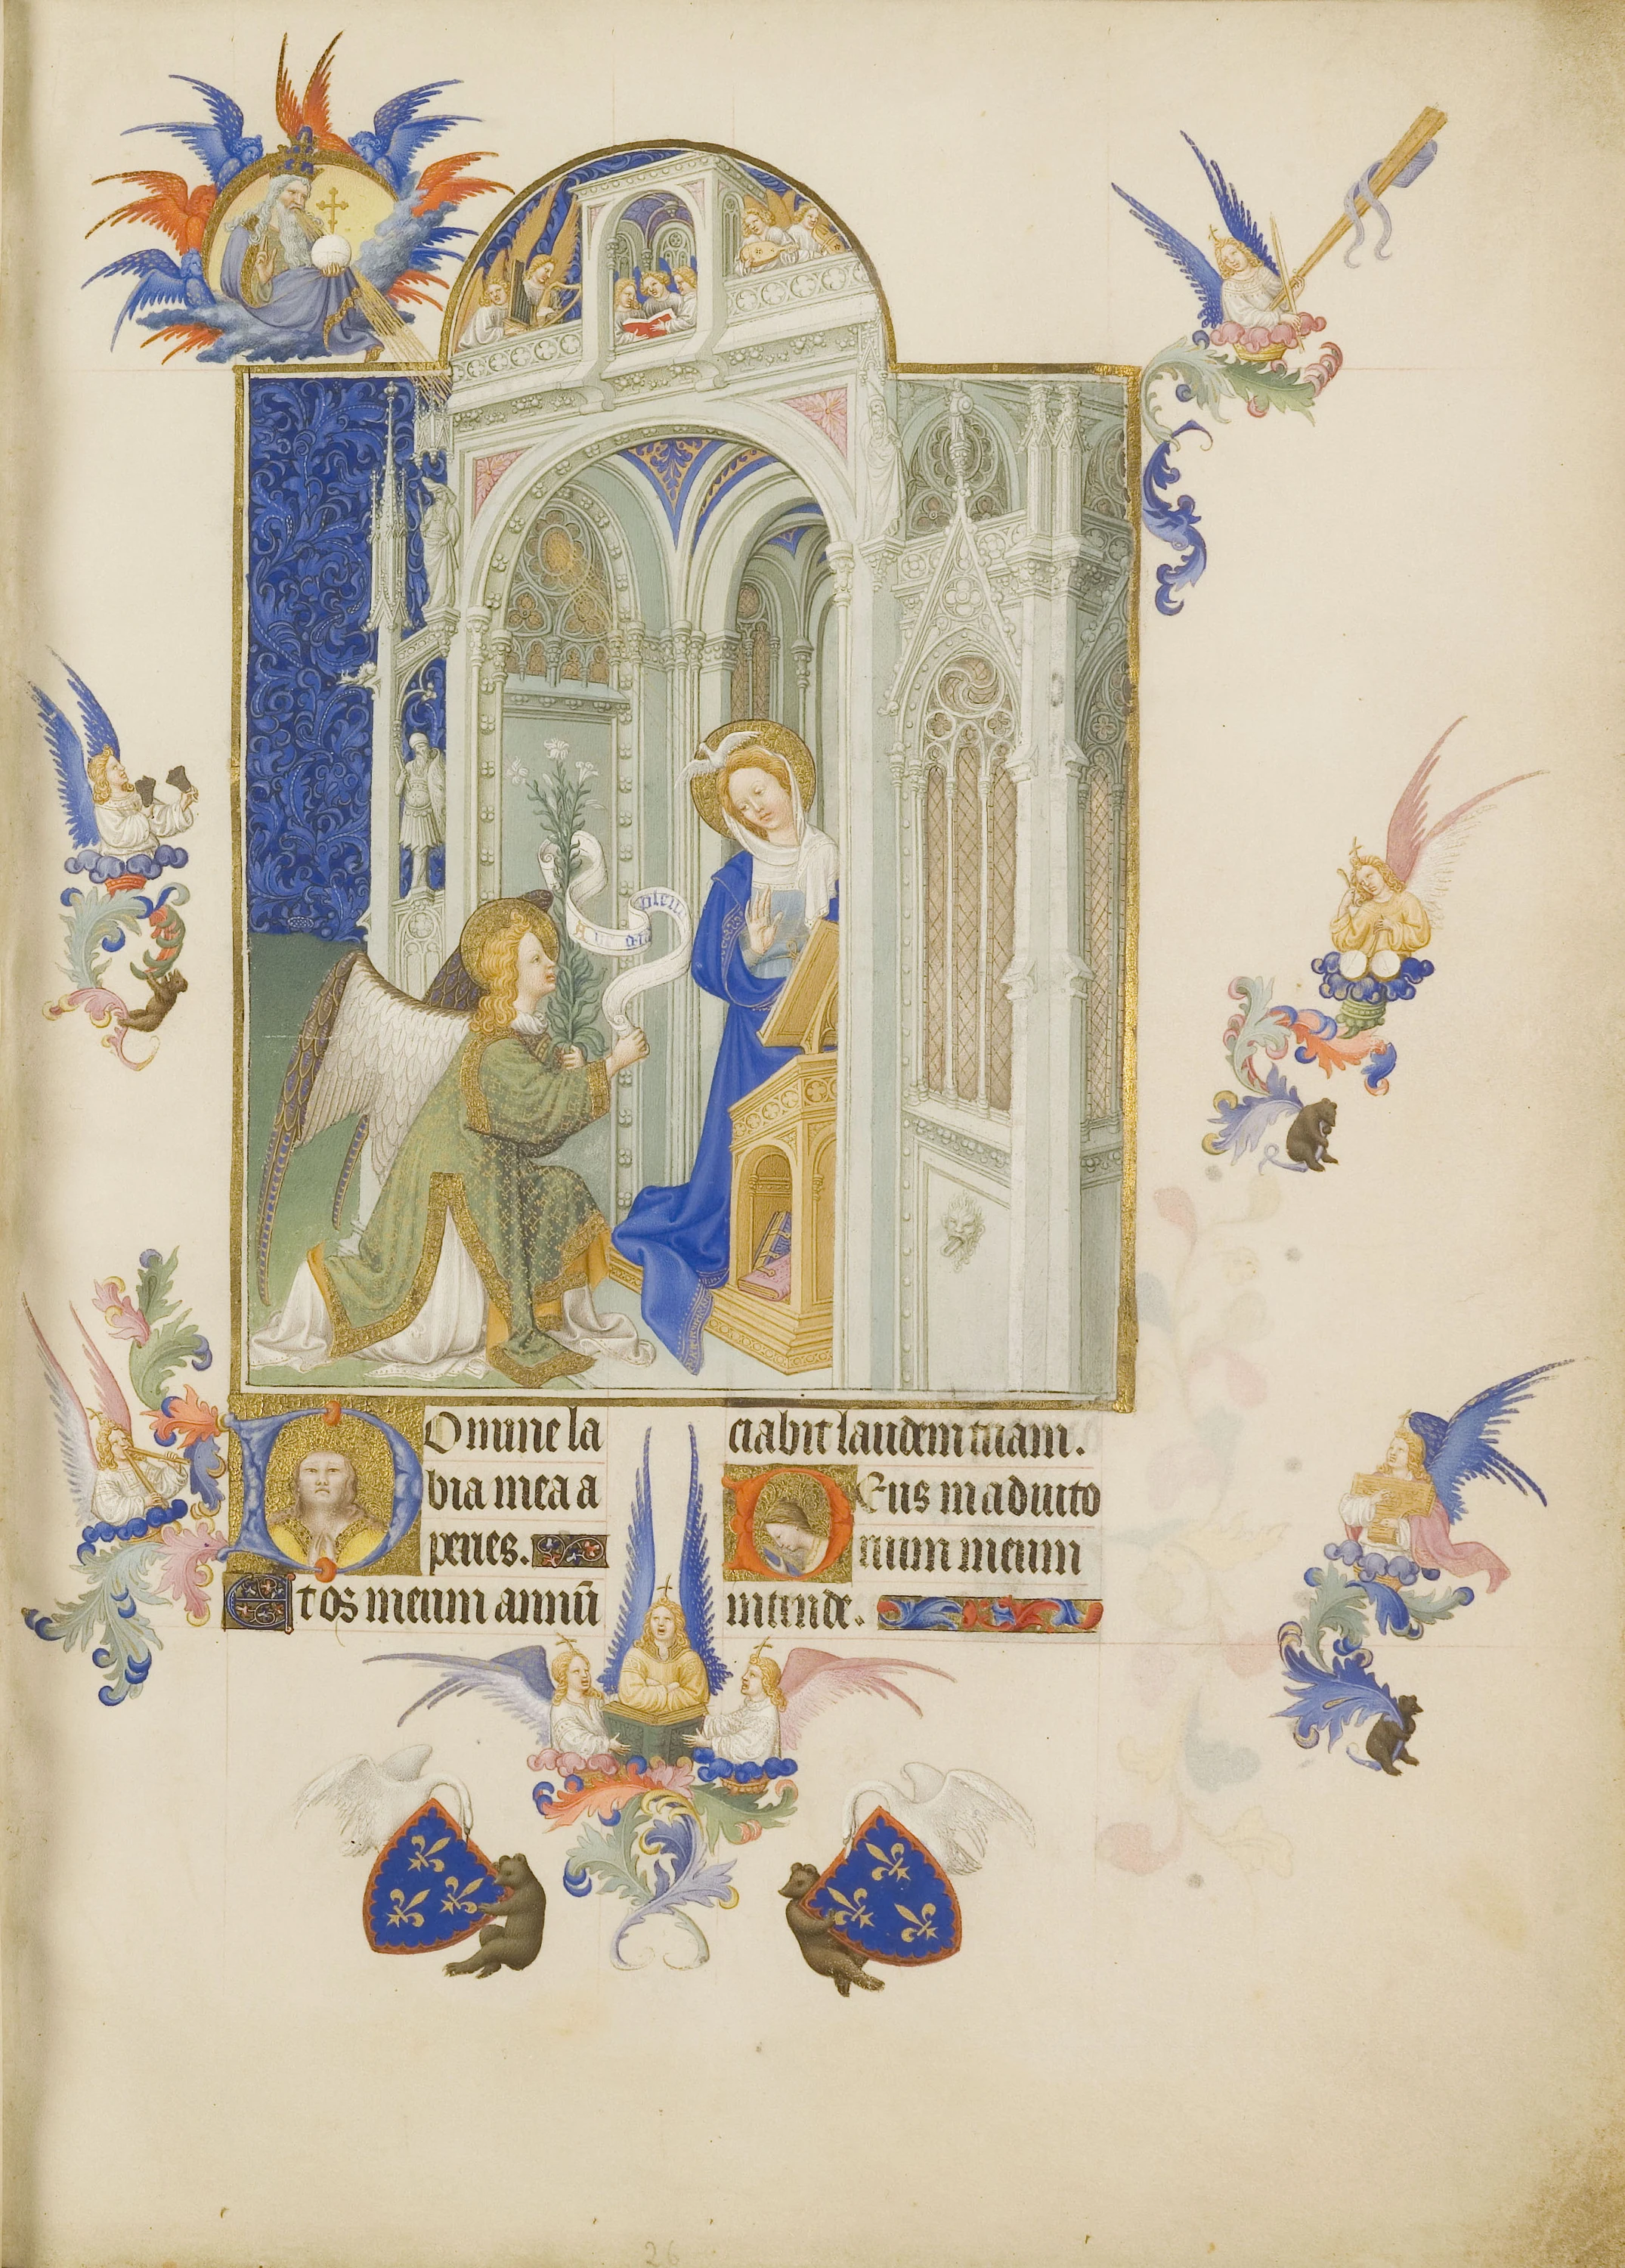 Aue gra plena
Domine la
bia mea a
peries.
Et os meum annū
ciabit laudem tuam.
Deus in adiuto
rium meum
intende.
26